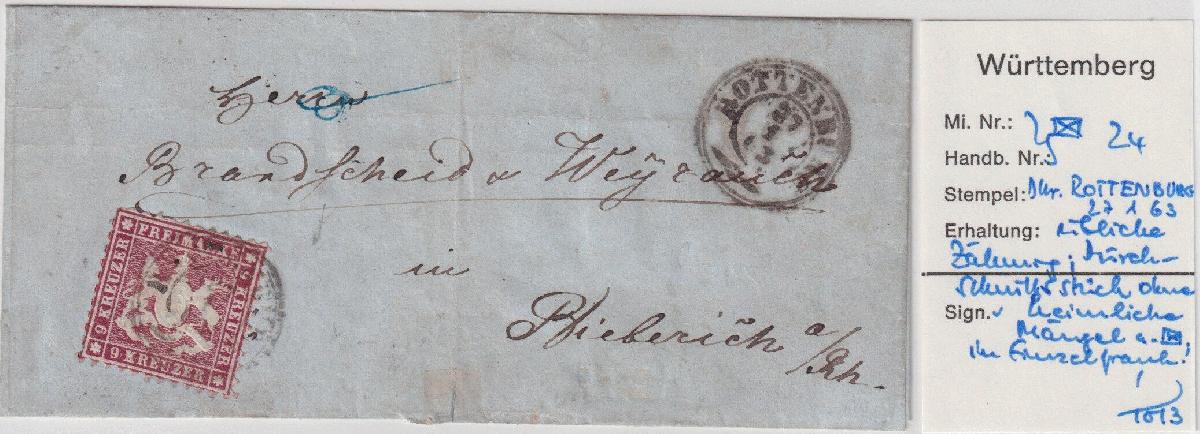 Herrn
Brandscheid & Weyrauch
in
Bieberich a/Rh.
ROTTENBU
27
FREIMARKE
9 KREUZER
9 KREUZER
9 KREUZER
Württemberg
Mi. Nr.: 24
Handb. Nr.:
Stempel: Dkr. ROTTENBURG
27 1 63
Erhaltung: übliche
Zähnung; Durch-
schnittsstück ohne
Sign. heimliche
Mängel a. ✉,
in Einzelfrank.!